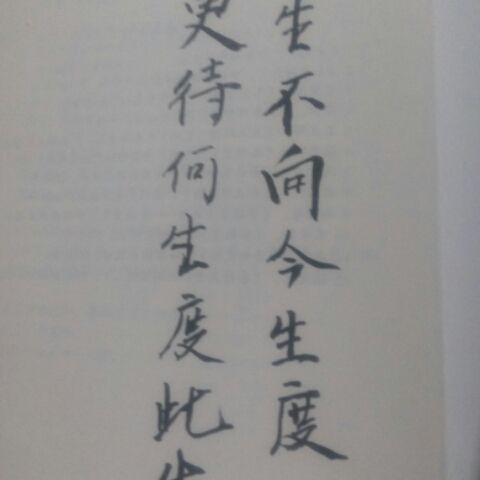 生不向今生度
更待何生度此生